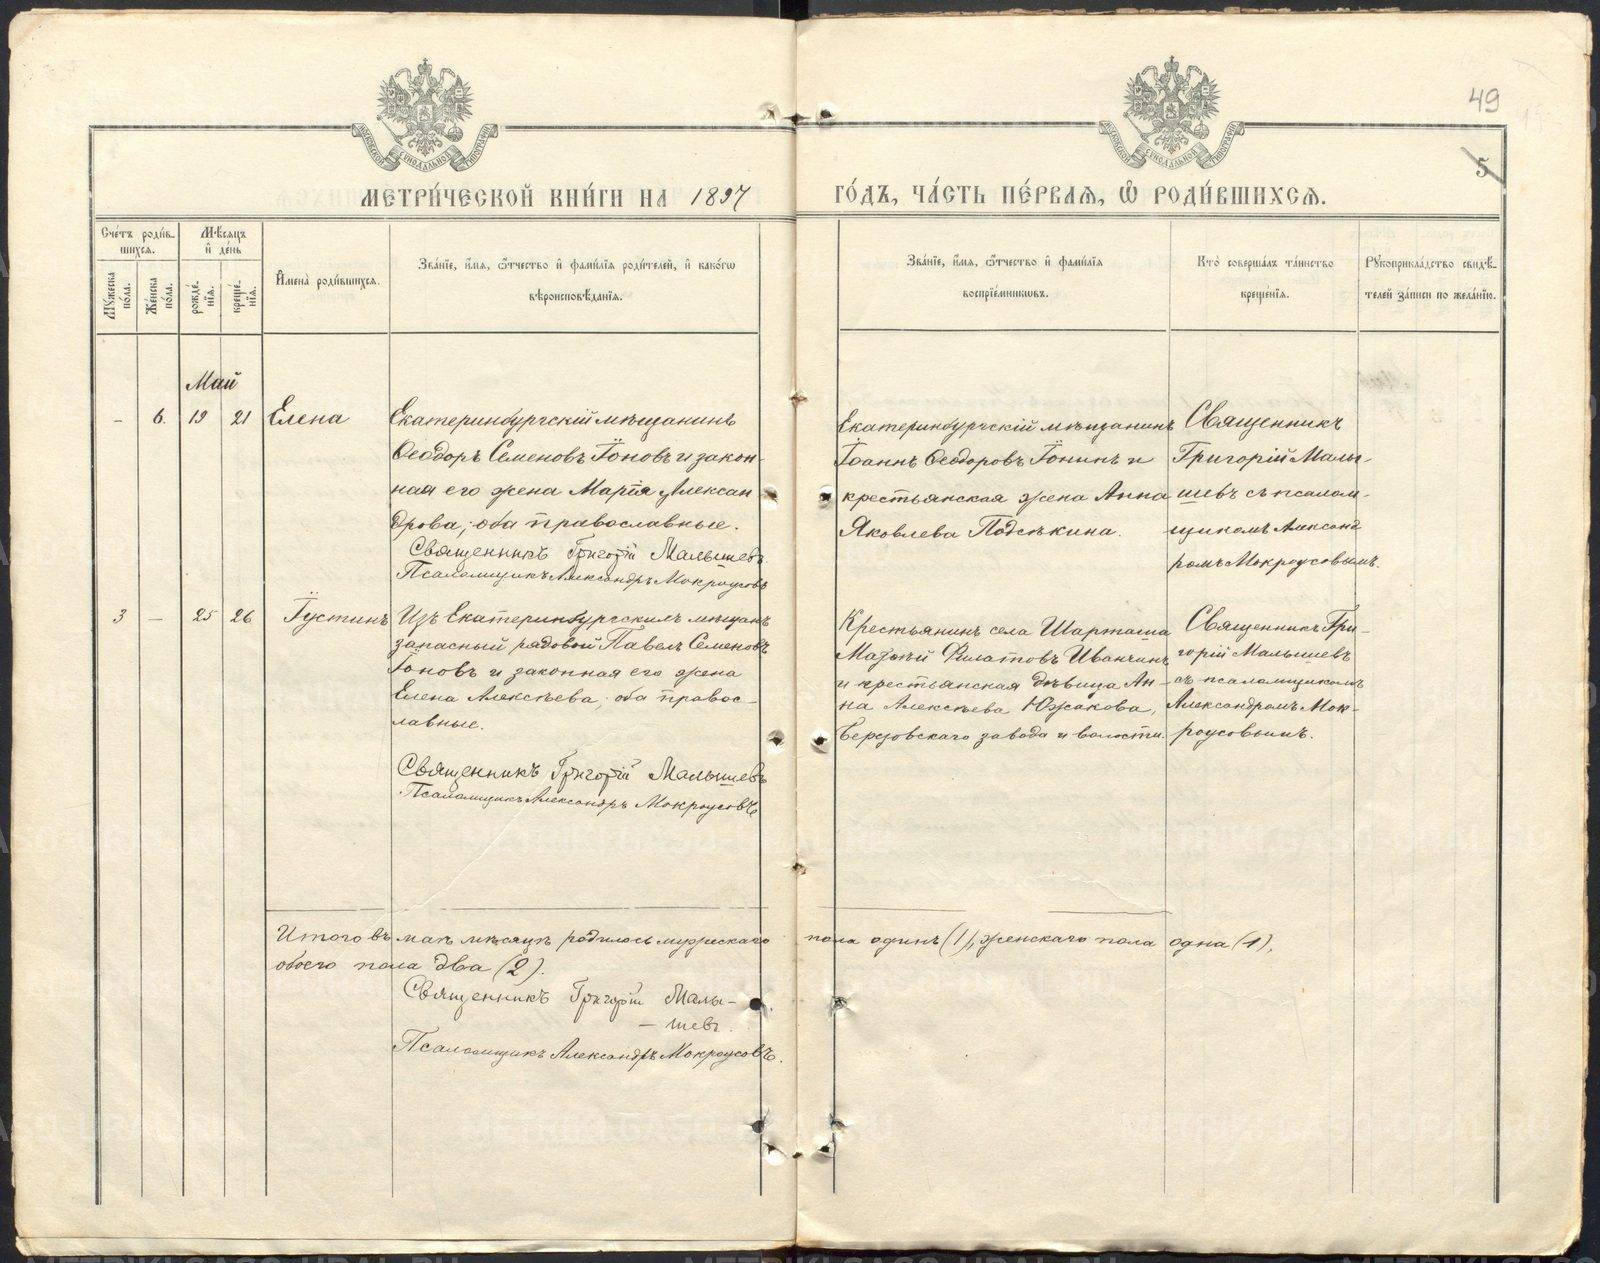 49
5
МЕТРИ́ЧЕСКОЙ КНИ́ГИ НА 1897
ГО́ДЪ, ЧА́СТЬ ПЕ́РВАЯ, Ѿ РОДИ́ВШИХСЯ.
Сче́тъ роди́в-
шихся.
Мѣ́сяцъ
и́ де́нь
Мꙋ́жеска по́ла.
Же́нска по́ла.
рожде́-
нїя.
креще́-
нїя.
И́мена̀ роди́вшихся.
Зва́нїе, и́мя, ѻ҆́тчество и́ фами́лїя роди́телей, и́ како́гѡ
вѣроисповѣ́данїя.
Зва́нїе, и́мя, ѻ҆́тчество и́ фами́лїя
воспрїе́мниковъ.
Кто̀ соверша́лъ та́инство
креще́нїя.
Рꙋкоприкла́дство свидѣ́-
телей за́писи по жела́нїю.
Май
- 6. 19 21 Елена
Екатеринбургскій мѣщанинъ
Ѳеодоръ Семеновъ Їоновъ и закон-
ная его жена Марія Алексан-
дрова, оба православные.
Священникъ Григорій Малышевъ
Псаломщикъ Александръ Мокроусовъ
Екатеринбургскій мѣщанинъ
Їоаннъ Ѳеодоровъ Їонинъ и
крестьянская жена Анна
Яковлева Подсѣкина.
Священникъ
Григорій Малы-
шевъ съ псалом-
щикомъ Александ
ромъ Мокроусовымъ.
3 — 25 26 Їустинъ
Изъ Екатеринбургскихъ мѣщанъ
запасный рядовой Павелъ Семеновъ
Їоновъ и законная его жена
Елена Алексѣева, оба правос-
лавные.
Священникъ Григорій Малышевъ
Псаломщикъ Александръ Мокроусовъ
Крестьянинъ села Шарташа
Матѳій Филатовъ Иванчинъ
и крестьянская дѣвица Ан-
на Алексѣева Южакова,
Березовскаго завода и волости.
Священникъ Гри-
горій Малышевъ
съ псаломщикомъ
Александромъ Мок-
роусовымъ.
Итого въ маѣ мѣсяцѣ родилось мужескаго пола одинъ (1), женскаго пола одна (1),
обоего пола два (2).
Священникъ Григорій Малы-
— шевъ.
Псаломщикъ Александръ Мокроусовъ.